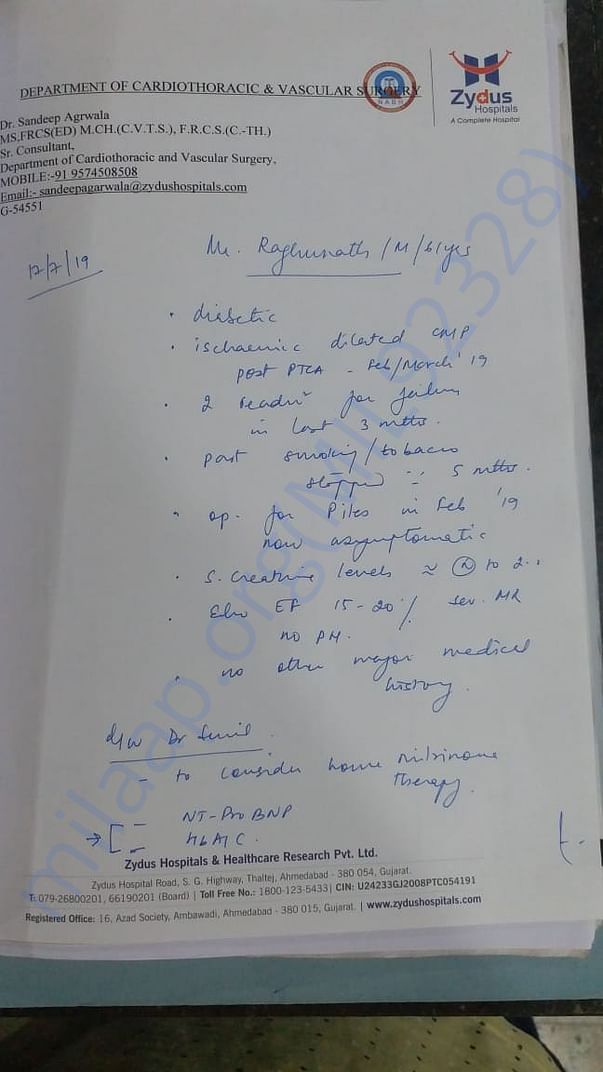 DEPARTMENT OF CARDIOTHORACIC & VASCULAR SURGERY
NABH
Zydus
Hospitals
A Complete Hospital
Dr. Sandeep Agrwala
MS,FRCS(ED) M.CH.(C.V.T.S.), F.R.C.S.(C.-TH.)
Sr. Consultant,
Department of Cardiothoracic and Vascular Surgery,
MOBILE:-91 9574508508
Email:- sandeepagarwala@zydushospitals.com
G-54551
Mr. Raghunath /M/61yrs
12/7/19
• diabetic
• ischaemic dilated CMP
post PTCA - Feb/March '19
• 2 readmn for failure
in last 3 mths.
• past smoking/tobacco
stopped 5 mths.
• op. for Piles in Feb '19
now asymptomatic
• S. Creatinine levels ≈ (N) to 2..
• Echo EF 15-20% sev. MR
no PM.
• no other major medical
history.
d/w Dr Sunil
- to consider home milrinone
therapy.
→ [ - NT-Pro BNP
- HbA1C.
Zydus Hospitals & Healthcare Research Pvt. Ltd.
Zydus Hospital Road, S. G. Highway, Thaltej, Ahmedabad - 380 054, Gujarat.
T: 079-26800201, 66190201 (Board) | Toll Free No.: 1800-123-5433| CIN: U24233GJ2008PTC054191
Registered Office: 16, Azad Society, Ambawadi, Ahmedabad - 380 015, Gujarat. | www.zydushospitals.com